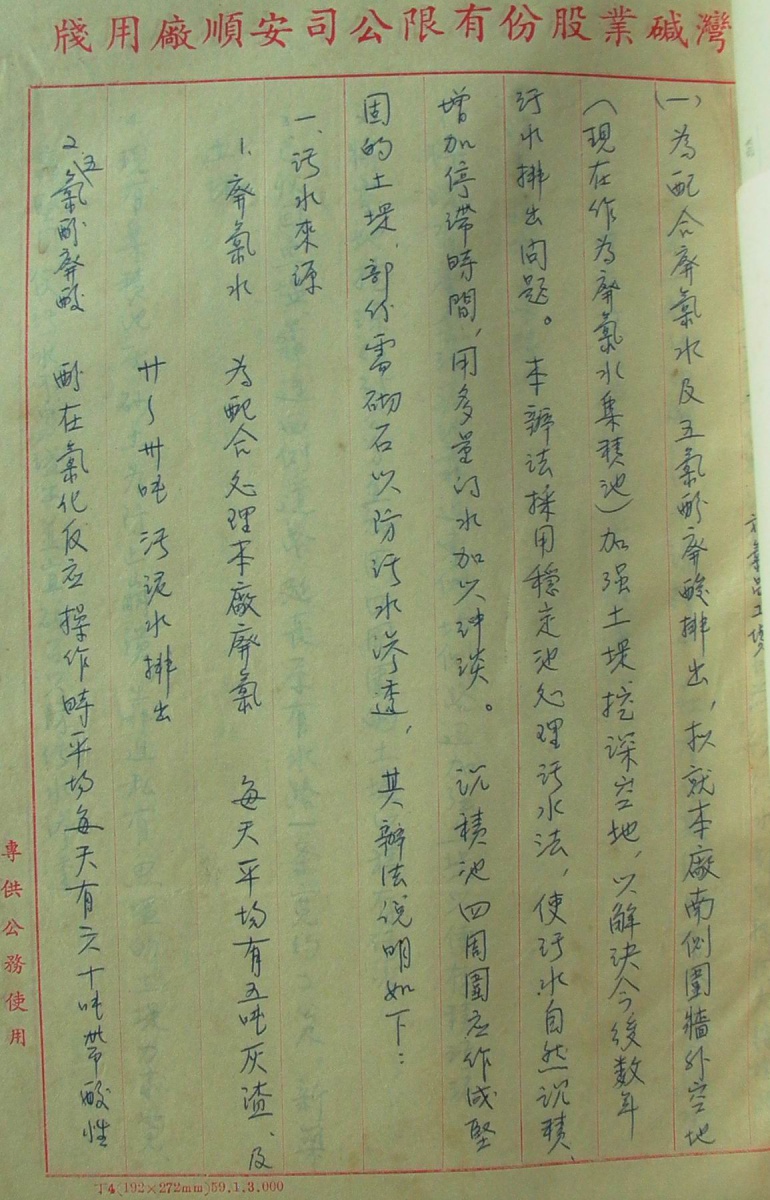 灣碱業股份有限公司安順廠用牋
(一)為配合廢氯水及五氯酚廢酸排出，拟就本廠南側圍牆外空地
(現在作為廢氯水集積池)加强土堤挖深空地，以解決今後数年
污水排出问题。本辦法採用穩定池处理污水法，使污水自然沉積、
增加停滯時間，用多量的水加以沖淡。沉積池四周圍应作成堅
固的土堤，部份需砌石以防污水滲透，其辦法说明如下：
一、污水來源
1. 廢氯水　为配合处理本廠廢氯　每天平均有五吨灰渣、及
廿～卅吨污泥水排出
2. 五氯酚廢酸　酚在氯化反应操作時平均每天有六十吨帶酸性
專供公務使用
丁4(192×272mm)59.1.3.000